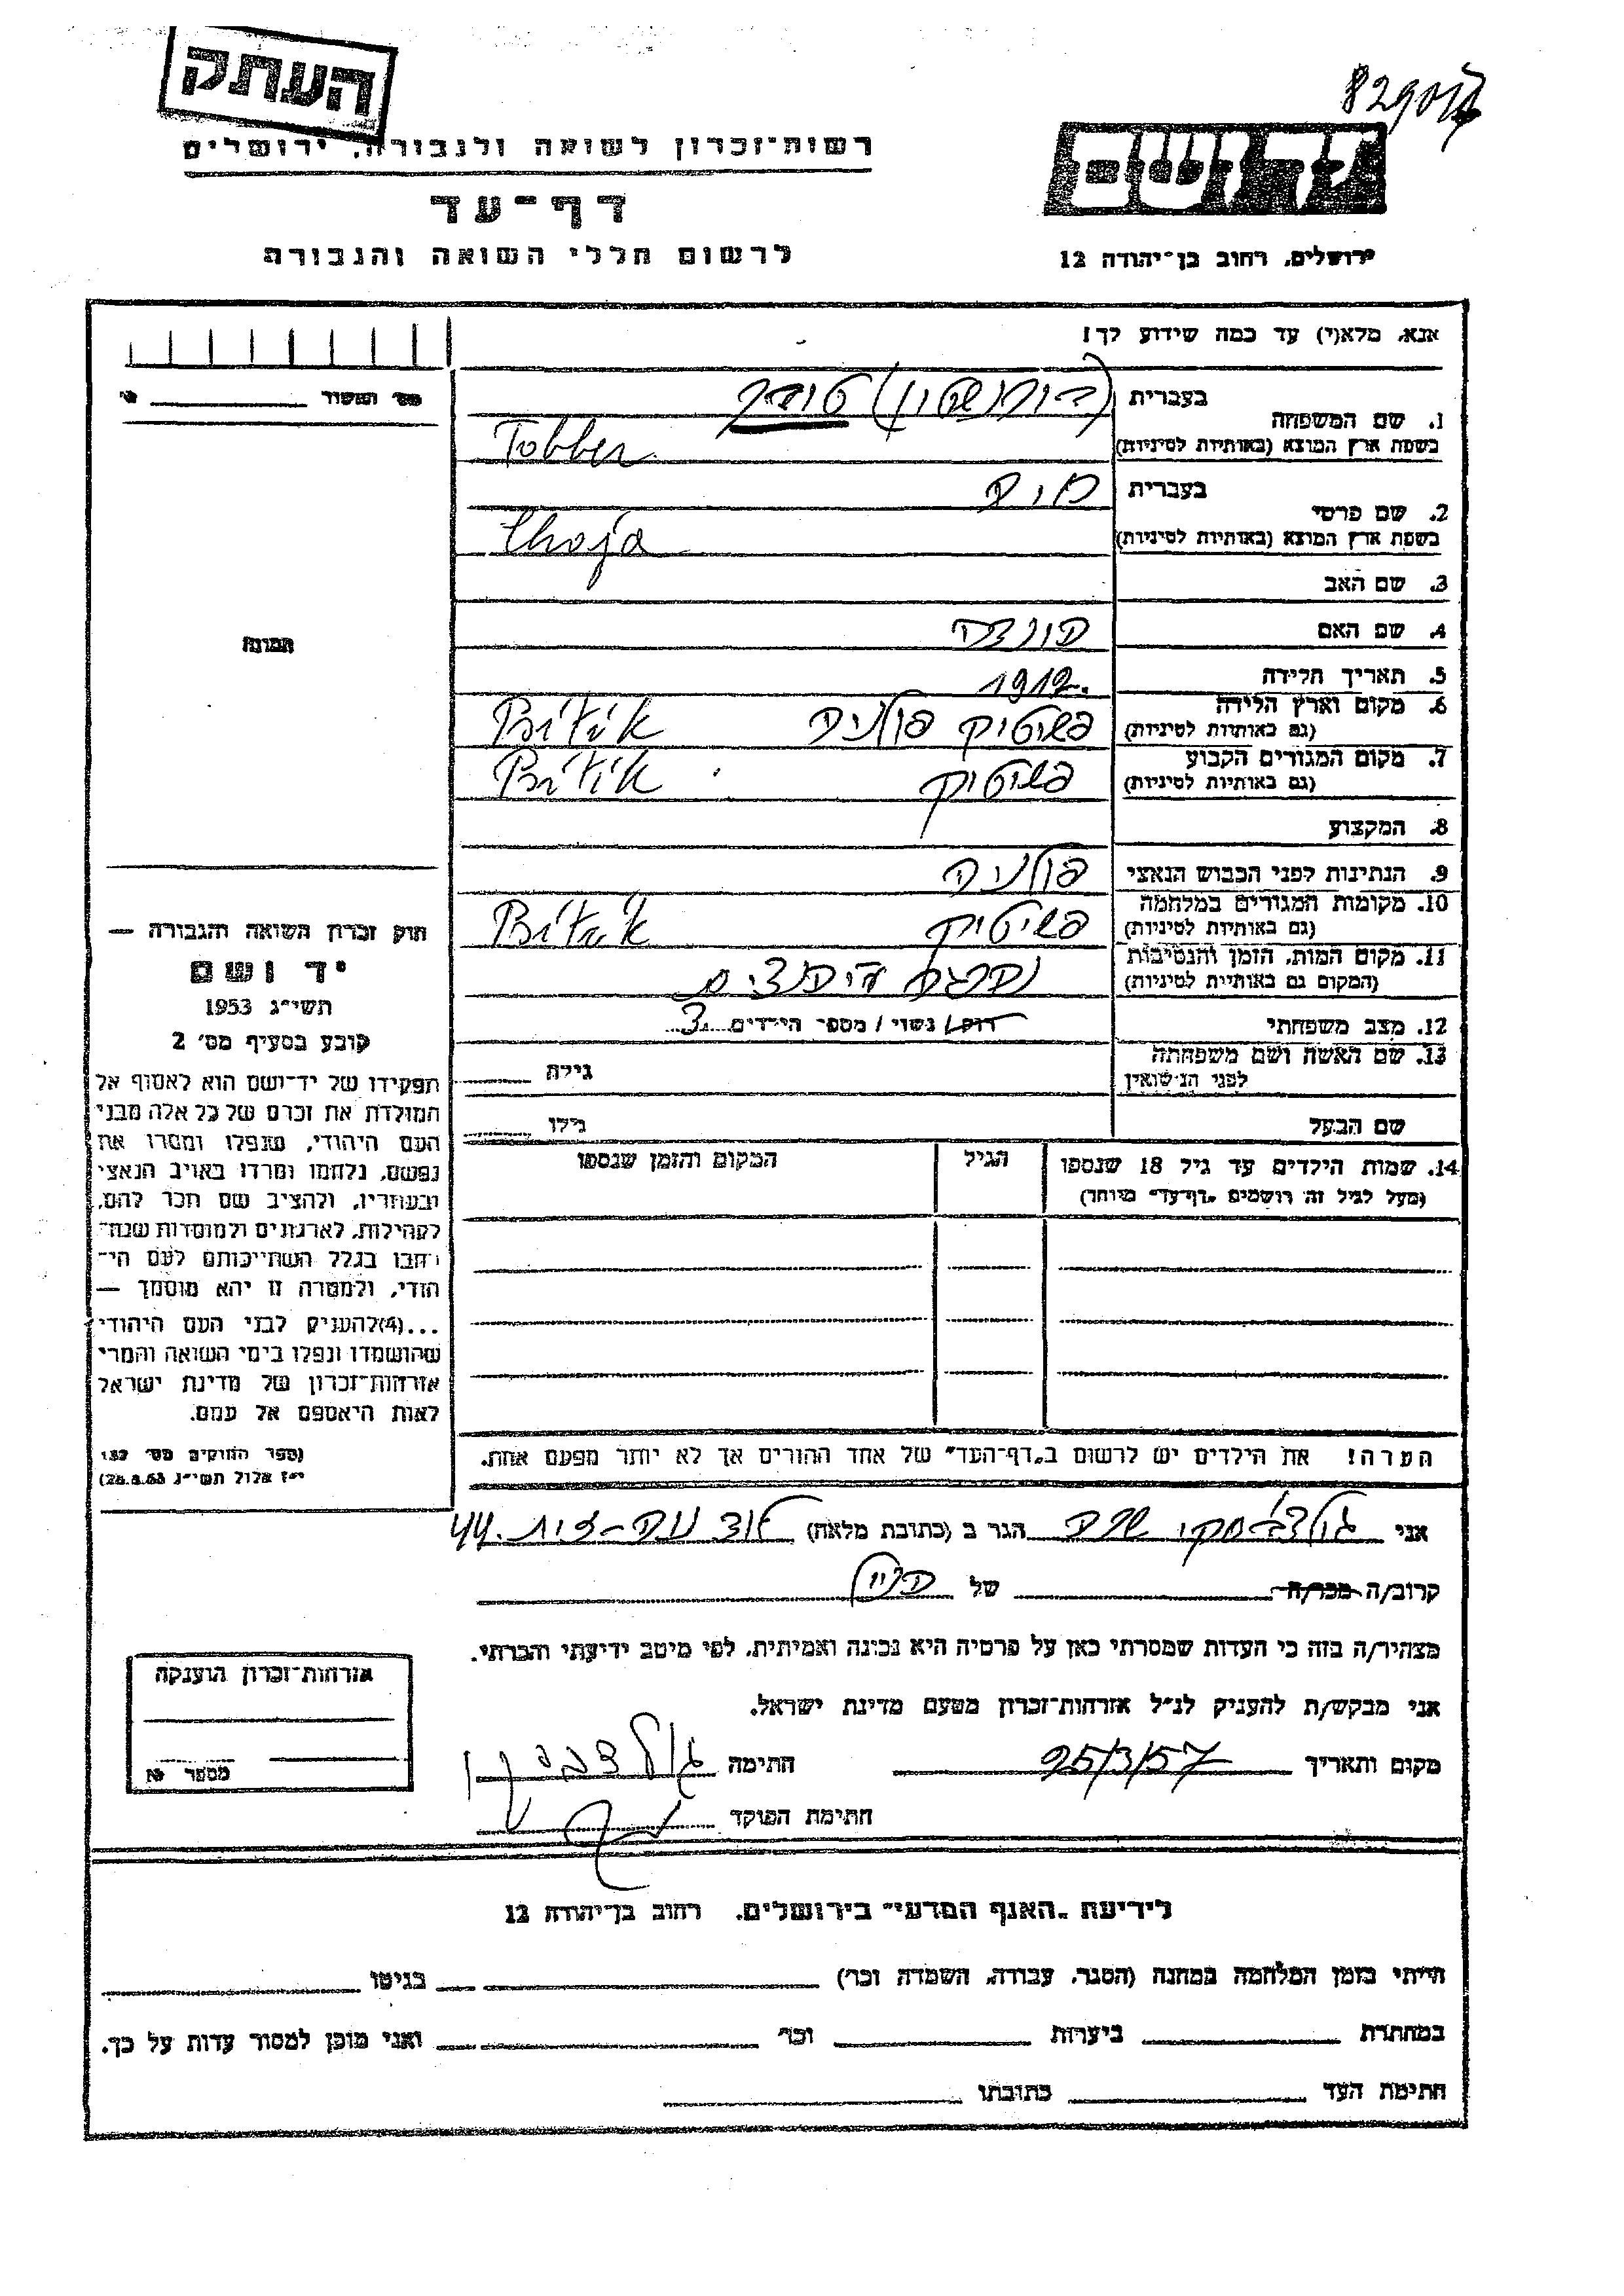 העתק
829017
רשות־זכרון לשואה ולגבורה, ירושלים
דף־עד
לרשום חללי השואה והגבורה
יד ושם
ירושלים, רחוב בן־יהודה 12
אנא, מלא(י) עד כמה שידוע לך!
מס' השור
1. שם המשפחה
בעברית
טובר
בשפת ארץ המוצא (באותיות לטיניות)
Tobber
2. שם פרטי
בעברית
חיה
בשפת ארץ המוצא (באותיות לטיניות)
Choja
3. שם האב
4. שם האם
5. תאריך הלידה
1912.
6. מקום וארץ הלידה
(גם באותיות לטיניות)
פשיטיק פולניה
7. מקום המגורים הקבוע
(גם באותיות לטיניות)
פשיטיק
8. המקצוע
9. הנתינות לפני הכבוש הנאצי
פולניה
10. מקומות המגורים במלחמה
(גם באותיות לטיניות)
פשיטיק
11. מקום המות, הזמן והנסיבות
(המקום גם באותיות לטיניות)
12. מצב משפחתי
רוק/ נשוי / מספר הילדים 3
13. שם האשה ושם משפחתה
לפני הנישואין
גילה
שם הבעל
גילו
14. שמות הילדים עד גיל 18 שנספו
(מעל לגיל זה רושמים "דף־עד" מיוחד)
הגיל
המקום והזמן שנספו
הערה! את הילדים יש לרשום ב"דף־העד" של אחד ההורים אך לא יותר מפעם אחת.
תמונה
חוק זכרון השואה והגבורה —
יד ושם
תשי"ג 1953
קובע בסעיף מס' 2
תפקידו של יד־ושם הוא לאסוף אל
המולדת את זכרם של כל אלה מבני
העם היהודי, שנפלו ומסרו את
נפשם, נלחמו ומרדו באויב הנאצי
ובעוזריו, ולהציב שם וזכר להם,
לקהילות, לארגונים ולמוסדות שנח־
רבו בגלל השתייכותם לעם הי־
הודי, ולמטרה זו יהא מוסמך —
...(4)להעניק לבני העם היהודי
שהושמדו ונפלו בימי השואה והמרי
אזרחות־זכרון של מדינת ישראל
לאות היאספם אל עמם.
(ספר החוקים מס' 132
י"ז אלול תשי"ג 28.8.53)
אני
שרה
הגר ב (כתובת מלאה)
44.
קרוב/ה מכר/ה
של
מצהיר/ה בזה כי העדות שמסרתי כאן על פרטיה היא נכונה ואמיתית, לפי מיטב ידיעתי והכרתי.
אני מבקש/ת להעניק לנ"ל אזרחות־זכרון מטעם מדינת ישראל.
מקום ותאריך
25/3/57
חתימה
חתימת הפוקד
אזרחות־זכרון הוענקה
מספר
לידיעת "האגף המדעי" בירושלים, רחוב בן־יהודה 12
הייתי בזמן המלחמה במחנה (הסגר, עבודה, השמדה וכו')
בגיטו
במחתרת
ביערות
וכו'
ואני מוכן למסור עדות על כך.
חתימת העד
כתובתו